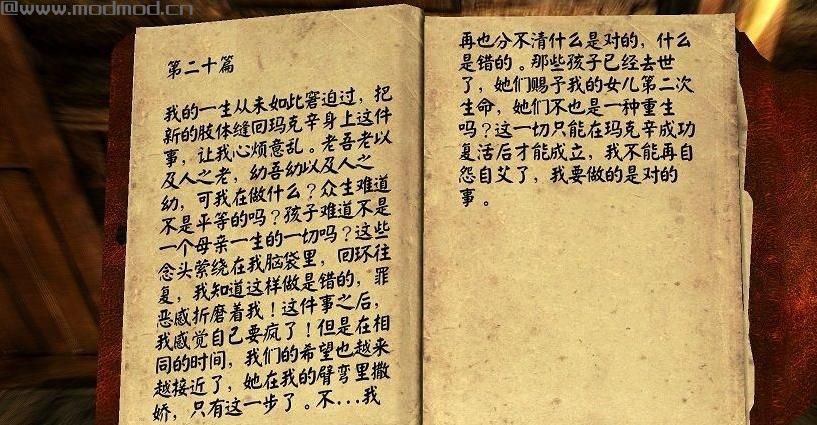 @www.modmod.cn
第二十篇
我的一生从未如此窘迫过，把
新的肢体缝回玛克辛身上这件
事，让我心烦意乱。老吾老以
及人之老，幼吾幼以及人之
幼，可我在做什么？众生难道
不是平等的吗？孩子难道不是
一个母亲一生的一切吗？这些
念头萦绕在我脑袋里，回环往
复，我知道这样做是错的，罪
恶感折磨着我！这件事之后，
我感觉自己要疯了！但是在相
同的时间，我们的希望也越来
越接近了，她在我的臂弯里撒
娇，只有这一步了。不...我
再也分不清什么是对的，什么
是错的。那些孩子已经去世
了，她们赐予我的女儿第二次
生命，她们不也是一种重生
吗？这一切只能在玛克辛成功
复活后才能成立，我不能再自
怨自艾了，我要做的是对的
事。